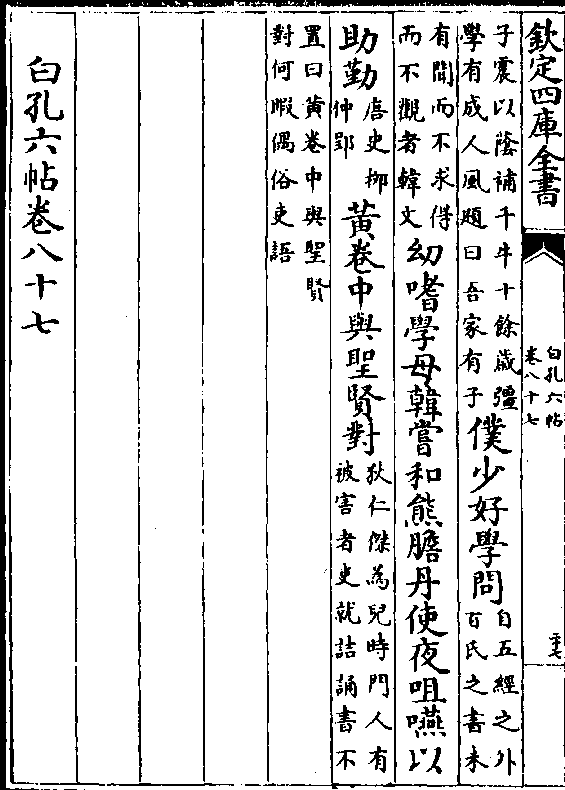 欽定四庫全書
白孔六帖
卷八十七
二十七
子震以蔭補千牛十餘歲彊
學有成人風題曰吾家有子
僕少好學問
自五經之外
百氏之書未
有聞而不求得
而不觀者韓文
幼嗜學母韓嘗和熊膽丹使夜咀嚥以
助勤
唐史柳
仲郢
黃卷中與聖賢對
狄仁傑為兒時門人有
被害者吏就詰誦書不
置曰黃卷中與聖賢
對何暇偶俗吏語
白孔六帖卷八十七